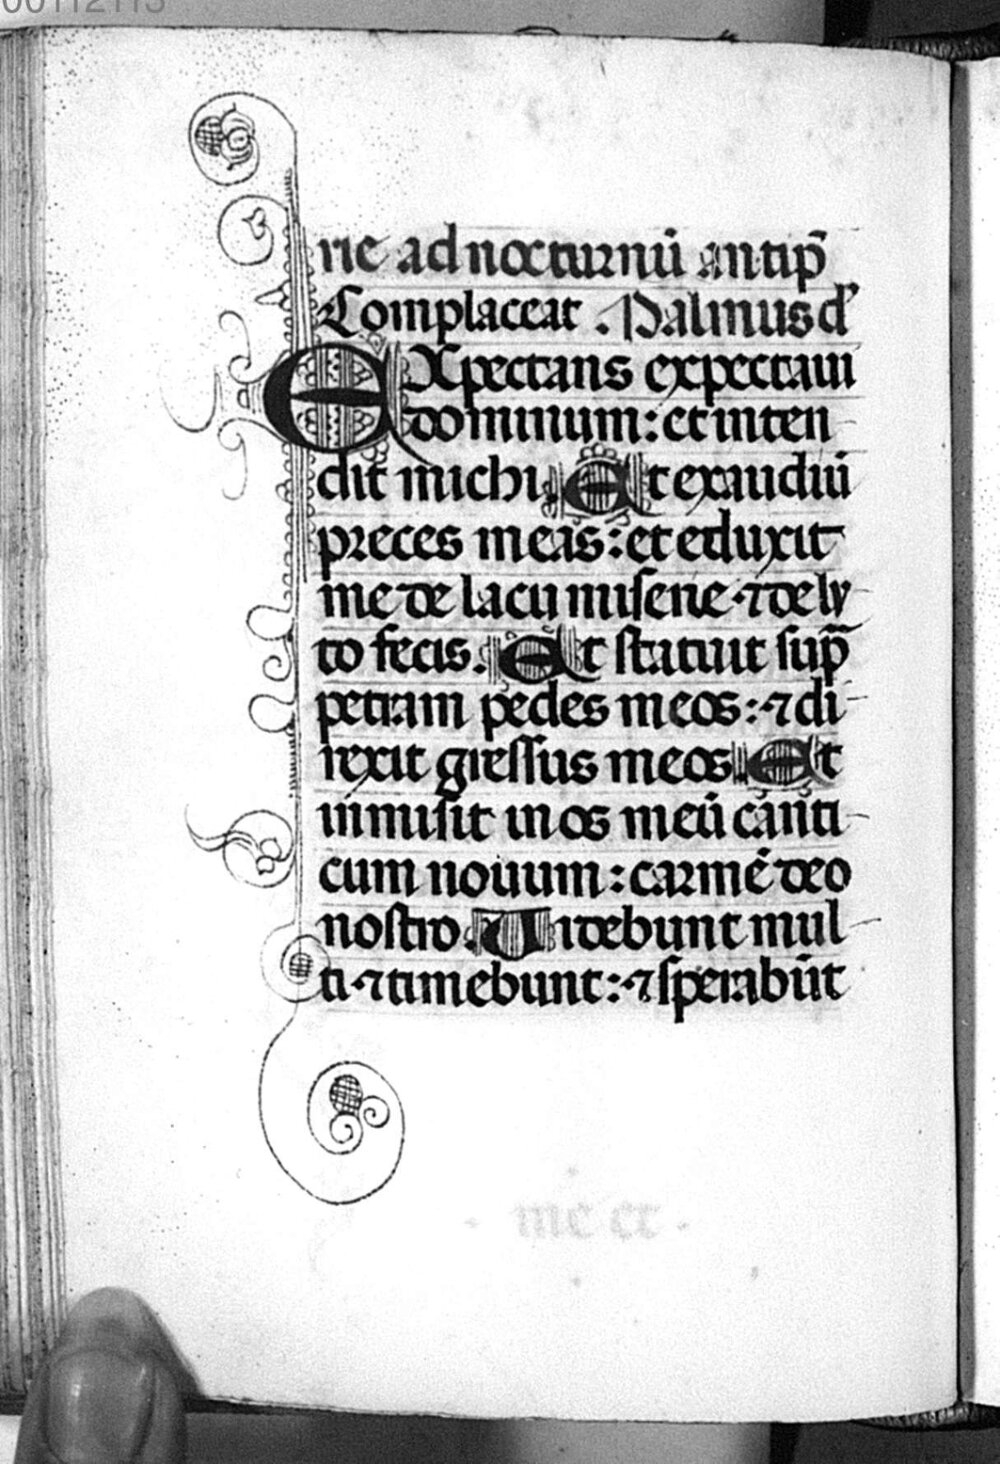 00112113
rie ad nocturnū antip̄
Complaceat. Psalmus d'
EXpectans expectaui
dominum: et inten
dit michi. Et exaudiui
preces meas: et eduxit
me de lacu miserie ⁊ de lu
to fecis. Et statuit sup̄
petram pedes meos: ⁊ di
rexit gressus meos. Et
inmisit in os meū canti
cum nouum: carmē deo
nostro. Uidebunt mul
ti ⁊ timebunt: ⁊ sperabūt